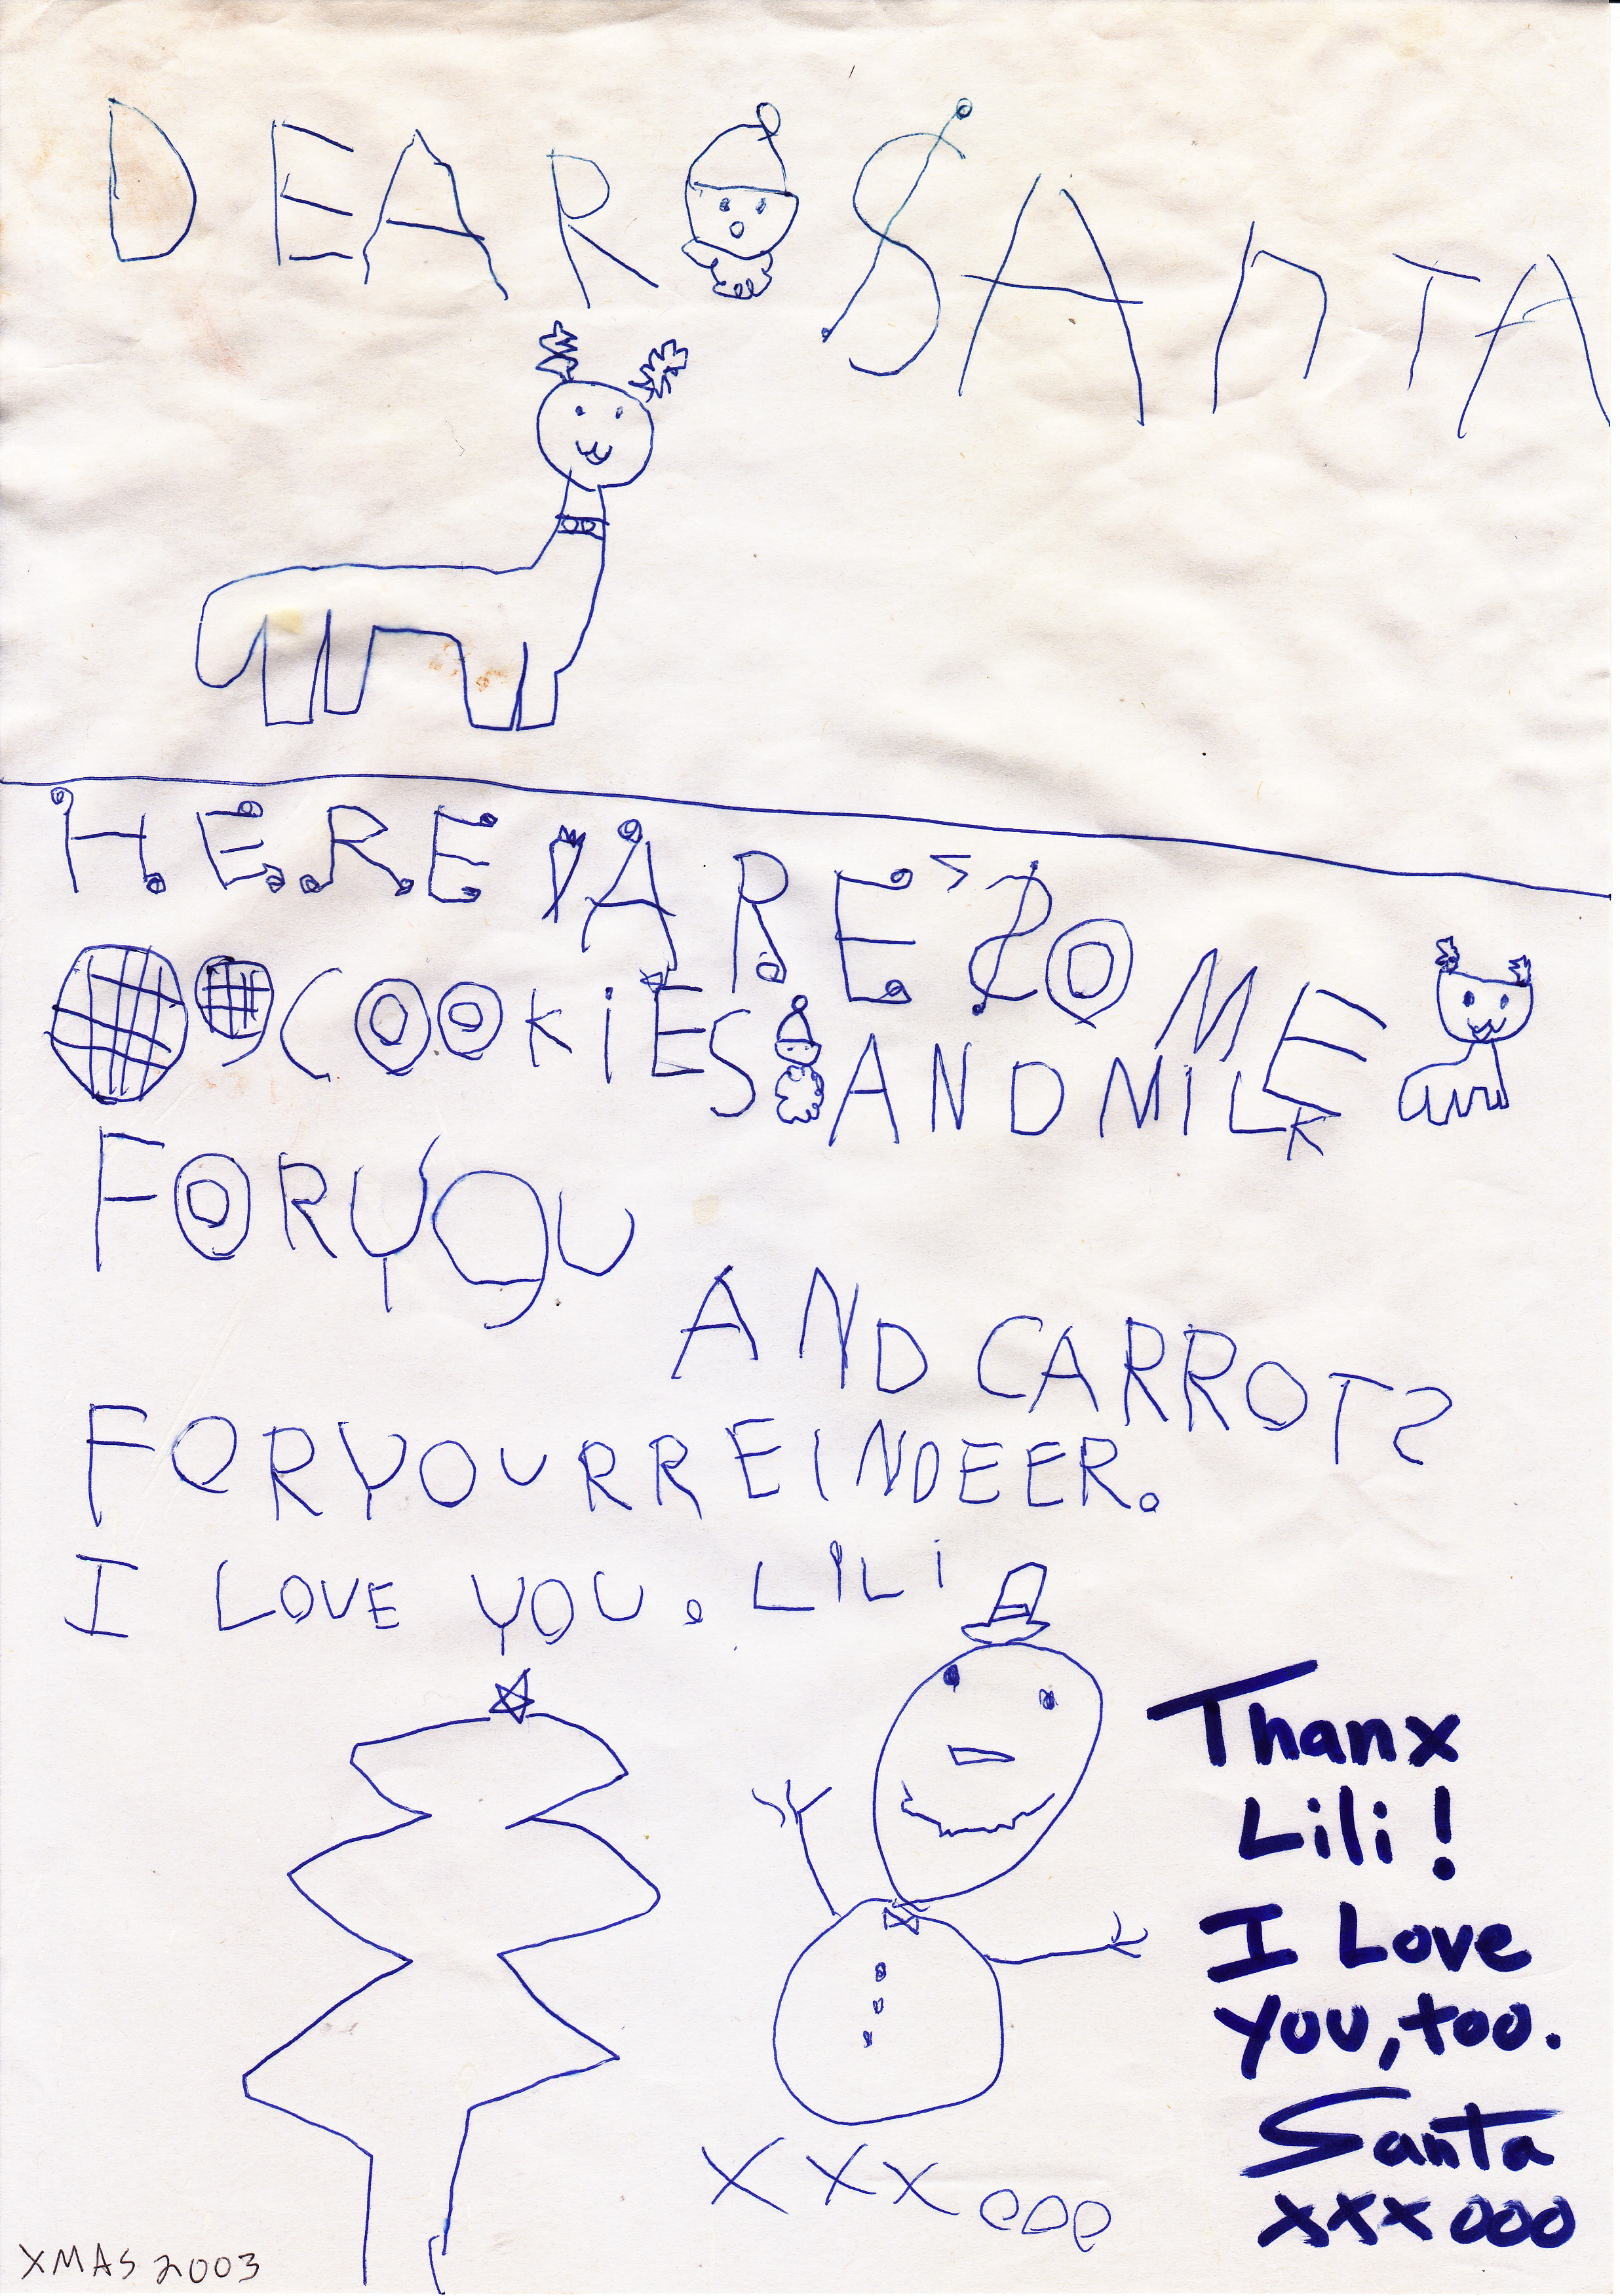 DEAR SAnTA
HERE ARE SOME
COOKiES AND MILK
FOR YOU
AND CARROTS
FOR YOUR REINDEER.
I LOVE YOU. LiLi
XXXooo
Thanx
Lili!
I Love
You, too.
Santa
xxxooo
XMAS 2003